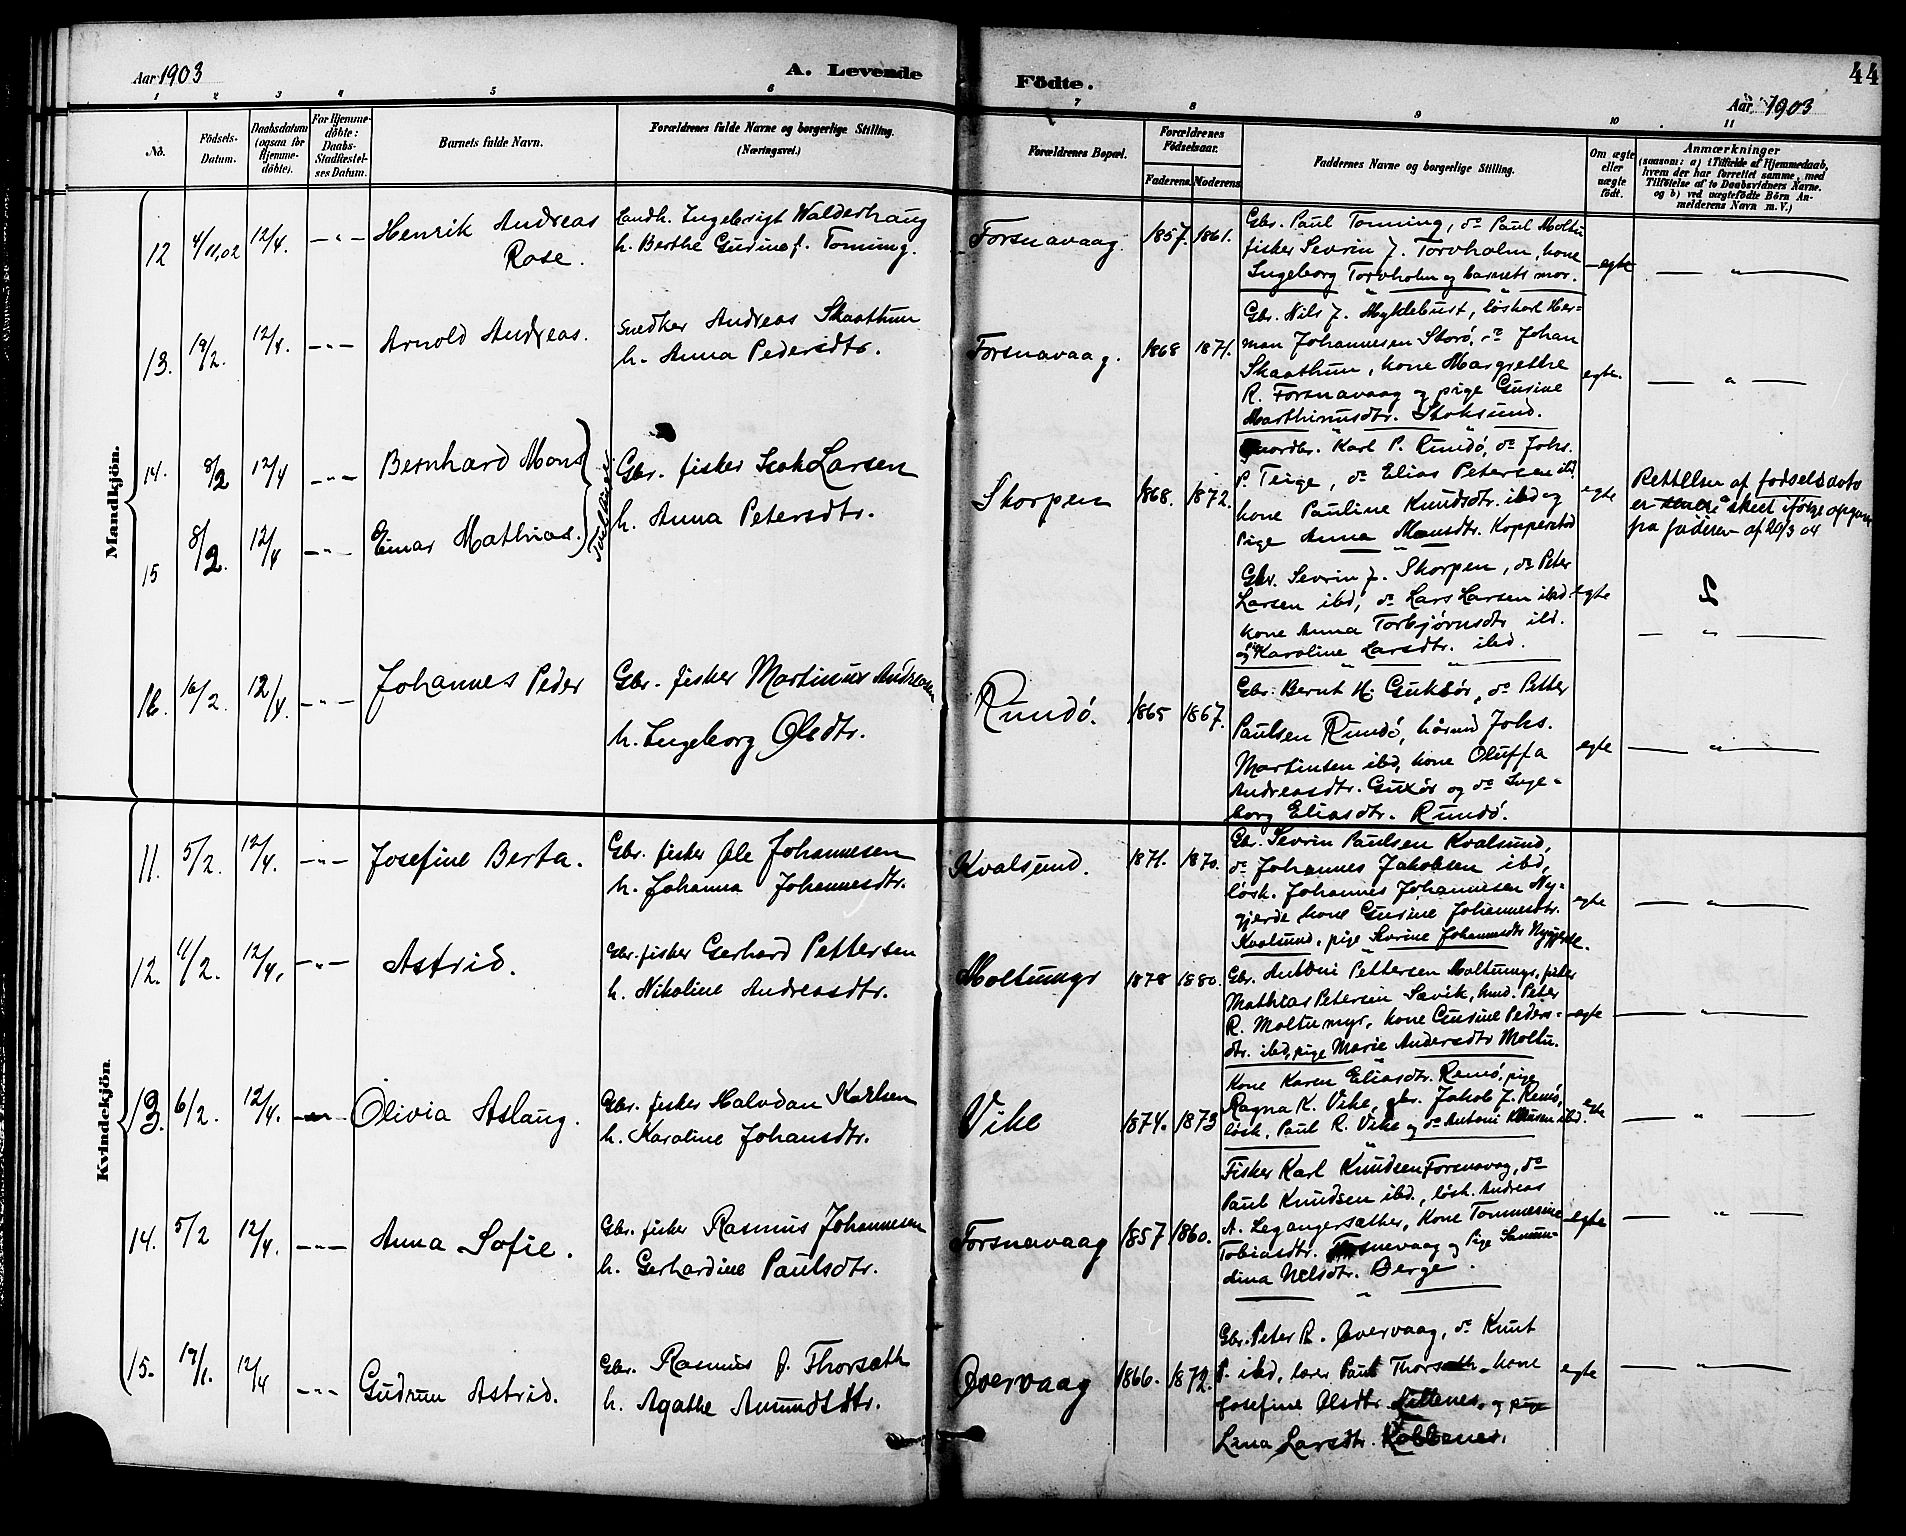 Aar 1903
A. Levende
Födte.
44
Aar 1903
1 2 3 4 5 6 7 8 9 10 11
No.
Födsels-
Datum.
Daabsdatum
(ogsaa for
Hjemme-
döbte).
For Hjemme-
döbte:
Daabs-
Stadfæstel-
ses Datum.
Barnets fulde Navn.
Forældrenes fulde Navne og borgerlige Stilling.
(Næringsvei.)
Forældrenes Bopæl.
Forældrenes
Födselsaar.
Faderens.
Moderens.
Faddernes Navne og borgerlige Stilling.
Om ægte
eller
uægte
födt.
Anmærkninger
(saasom: a) i Tilfælde af Hjemmedaab,
hvem der har forrettet samme, med
Tilföielse af to Daabsvidners Navne.
og b) ved uægtefödte Börn An-
melderens Navn m. V.)
Mandkjön.
12 4/11,02 12/4. — " — Henrik Andreas
Rase.
Landh. Ingebrigt Walderhaug
h. Berthe Gurine f. Tonning.
Forsnavaag. 1857. 1861.
Gbr. Paul Tonning, do Paul Moltu
fisker Sevrin J. Torvholm, kone
Ingeborg Torvholm og barnets mor.
egte — " —
13. 19/2. 12/4. — " — Arnold Andreas.
Snedker Andreas Skaathun
h. Anna Pedersdtr.
Forsnavaag. 1868 1871.
Gbr. Nils J. Myklebust, løskarl Her-
man Johannesen Storø, do Johan
Skaathun, kone Margrethe
R. Forsnavaag og pige Gurine
Marthinusdtr. Stoksund.
egte. — " —
14. 8/2 12/4 — " — Bernhard Mons
15 8/2. 12/4 — " — Einar Mathias.
Gbr. fisker Isak Larsen
h. Anna Petersdtr.
Skorpen 1868. 1872.
Gaardbr. Karl P. Rundö, do Johs.
P. Teige, do Elias Petersen ibd
kone Pauline Knudsdtr. ibd og
Pige Anna Monsdtr. Kopperstad
egte
Rettelsen af fødselsdato
er skeet ifølge opgave
fra faderen af 20/3 04
Gbr. Sevrin J. Skorpen, do Peter
Larsen ibd, do Lars Larsen ibd.
kone Anna Torbjørnsdtr ibd.
og Karoline Larsdtr. ibd.
egte — " —
16. 16/2. 12/4. — " — Johannes Peder
Gbr. fisker Martinus Andreasen
h. Ingeborg Olsdtr.
Rundö. 1865 1867.
Gbr. Bernt H. Guksør, do Petter
Paulsen Rundö, Johs.
Martinsen ibd, kone Oluffa
Andreasdtr. Guxør og do Inge-
borg Eliasdtr. Rundö.
egte — " —
Kvindekjön.
11. 5/2. 12/4. — " — Josefine Berta.
Gbr. fisker Ole Johannesen
h. Johanna Johannesdtr.
Kvalsund. 1871. 1870.
Gb. Sevrin Paulsen Kvalsund,
do Johannes Jakobsen ibd,
løsk. Johannes Johannesen Ny-
gjerde kone Gurine Johannesdtr.
Kvalsund, pige Severine Johannesdtr Nygjerde.
egte — " —
12. 4/2. 12/4. — " — Astrid.
Gbr. fisker Gerhard Pettersen
h. Nikoline Andreasdtr.
Moltumyr 1878 1880.
Gbr. Antoni Pettersen Moltumyr, fisker
Mathias Petersen Sævik, hmd. Peter
R. Moltumyr, kone Gurine Peders-
dtr. ibd, pige Marie Andersdtr Moltu.
egte — " —
13. 6/2. 12/4. — " — Olivia Aslaug.
Gbr. fisker Halvdan Karlsen
h. Karoline Johansdtr.
Vike 1874. 1873
Kone Karen Eliasdtr. Remö, pige
Ragna K. Vike, gbr. Jakob J. Remö,
løsk. Paul R. Vike og do Antoni ibd.
egte — " —
14. 5/2 12/4. — " — Anna Sofie.
Gbr. fisker Rasmus Johannesen
h. Gerhardine Paulsdtr.
Forsnavaag 1857 1860.
Fisker Karl Knudsen Forsnavag, do
Paul Knudsen ibd., løsk. Andreas
A. Legangersæther, Kone Tommesine
Tobiasdtr. Forsnavaag og Pige
dina Nilsdtr. Berge.
egte — " —
15. 19/1. 12/4 — " — Gudrun Astrid.
Gbr. Rasmus J. Thorsæth
h. Agathe Amundsdtr.
Overvaag 1866. 1872.
Gbr. Peter R. Overvaag, do Knut
P. ibd, lærer Paul Thorsæth, kone
Josefine Olsdtr. og pige
Lina Larsdtr. Kobbenes.
egte — " —